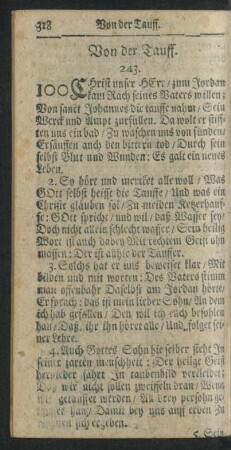 318 Von der Tauff.
Von der Tauff.
243.
100 Christ unser HErr / zum Jordan
kam Nach seines Vaters willen:
Von sanct Johannes die tauffe nahm / Sein
Werck und Ampt zurfüllen. Da wolt er stiff-
ten uns ein bad / Zu waschen uns von sünden /
Ersäuffen auch den bittern tod / Durch sein
selbst Blut und Wunden: Es galt ein neues
Leben.
2. So hört und mercket alle woll / Was
GOtt selbst heist die Tauffe / Und was ein
Christe gläuben sol / Zu meiden Ketzerhauf-
fe: GOtt spricht / und wil / daß Wasser sey /
Doch nicht allein schlecht wasser / Sein heilig
Wort ist auch dabey Mit rechtem Geist ohn
massen: Der ist alhie der Tauffer.
3. Solchs hat er uns beweiset klar / Mit
bilden und mit worten: Des Vaters stimm
man offenbahr Daselbst am Jordan hörte /
Er sprach: das ist mein lieber Sohn / An dem
ich hab gefallen / Den wil ich euch befohlen
han / Daß, ihr ihn höret alle / Und folget sei-
ner Lehre.
4. Auch Gottes Sohn hie selber steht In
seiner zarten menschheit: Der heilge Geist
hernieder fährt In taubenbild verkleidet:
Daß wir nicht sollen zweiffeln dran / Wenn
wir getauffet werden / All drey person ge-
tauffet han / Damit bey uns auff erden Zu
wohnen sich ergeben.
5. Sein